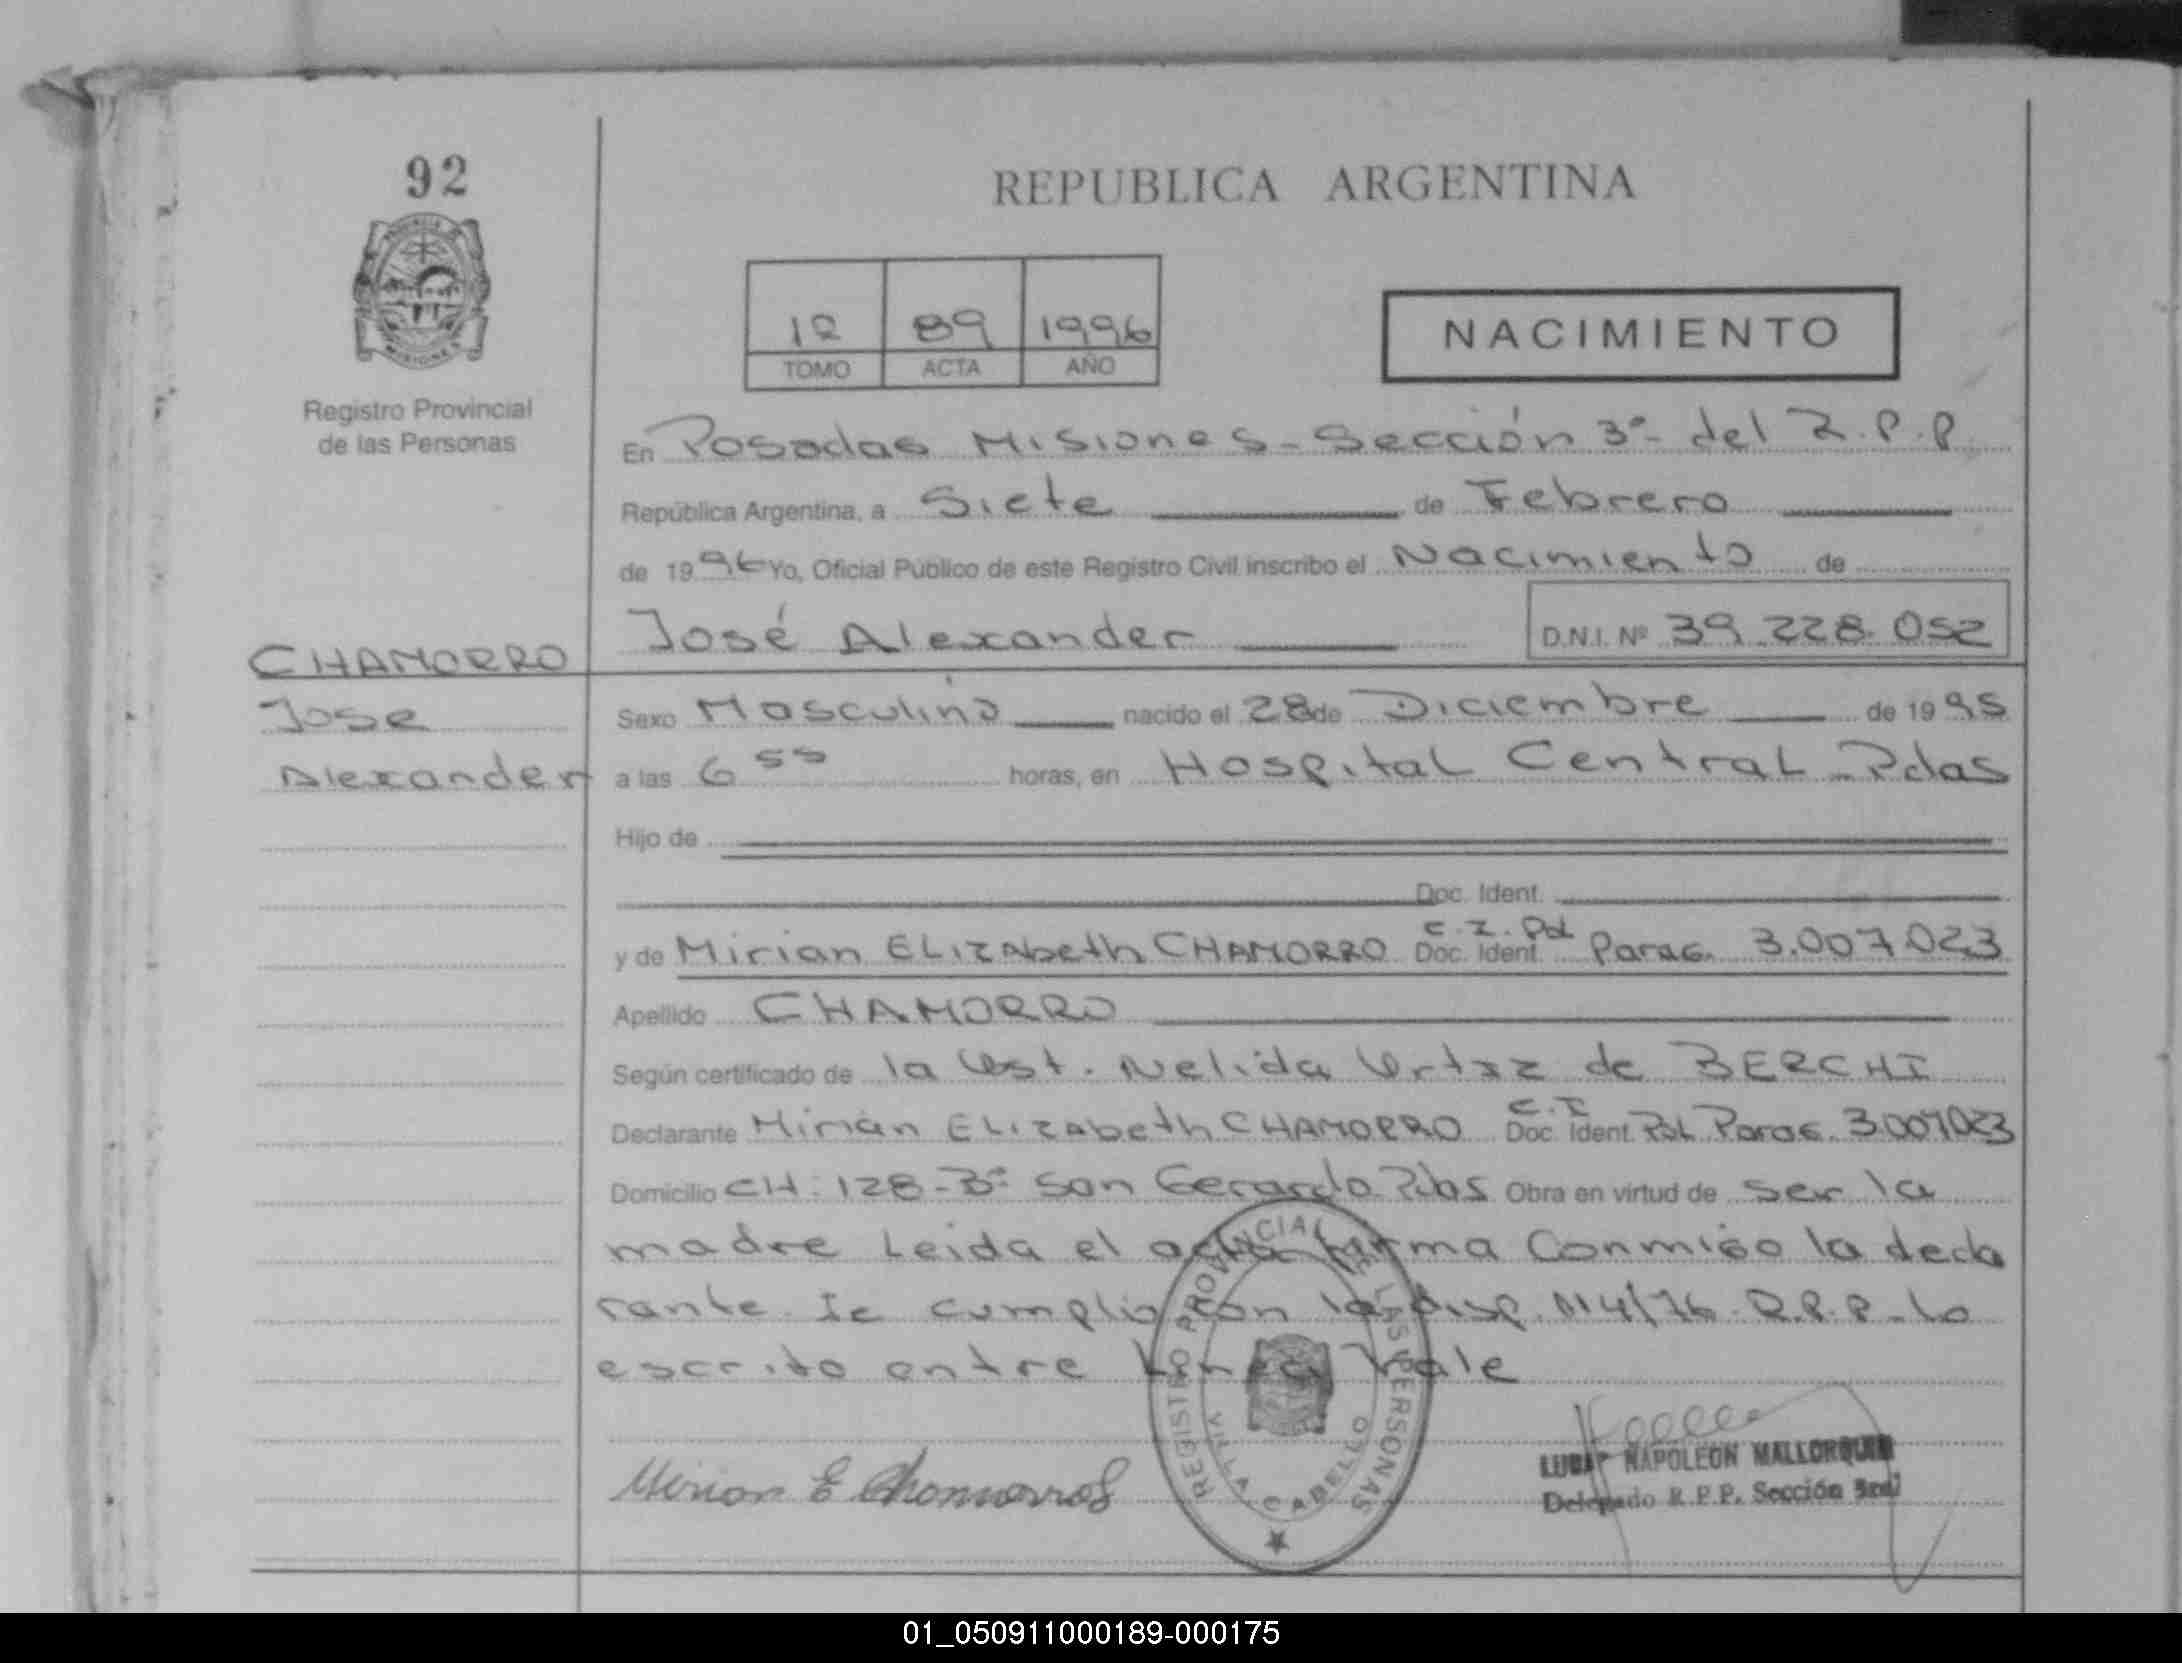 92
REPUBLICA ARGENTINA
12 89 1996
TOMO ACTA AÑO
NACIMIENTO
Registro Provincial
de las Personas
En Posadas Misiones - Sección 3ª del R.P.P
República Argentina, a Siete de Febrero
de 1996 Yo, Oficial Público de este Registro Civil inscribo el Nacimiento de
José Alexander D.N.I. Nº 39.228.052
CHAMORRO
Jose
Alexander
Sexo Masculino nacido el 28 de Diciembre de 1995
a las 6 55 horas, en Hospital Central - Pdas
Hijo de
Doc. Ident.
y de Mirian ELIZAbeth CHAMORRO Doc. Ident. C.I. Pol Parag. 3.007.023
Apellido CHAMORRO
Según certificado de la Obst. Nelida de BERCHI
Declarante Mirian ELIZAbeth CHAMORRO Doc. Ident. C.I Pol Parag. 3.007.023
Domicilio CH: 128 - Bº San Gerardo Pdas Obra en virtud de ser la
madre Leida el acta firma Conmigo la decla
rante Se cumplio con la Disp. Nº4/76 R.P.P - lo
escrito entre linea Vale
REGISTRO PROVINCIAL DE LAS PERSONAS
VILLA CABELLO
MISIONES
Mirian E Chamorro
NAPOLEON MALLORQUIN
Delegado R.P.P. Sección 3ra
01_050911000189-000175